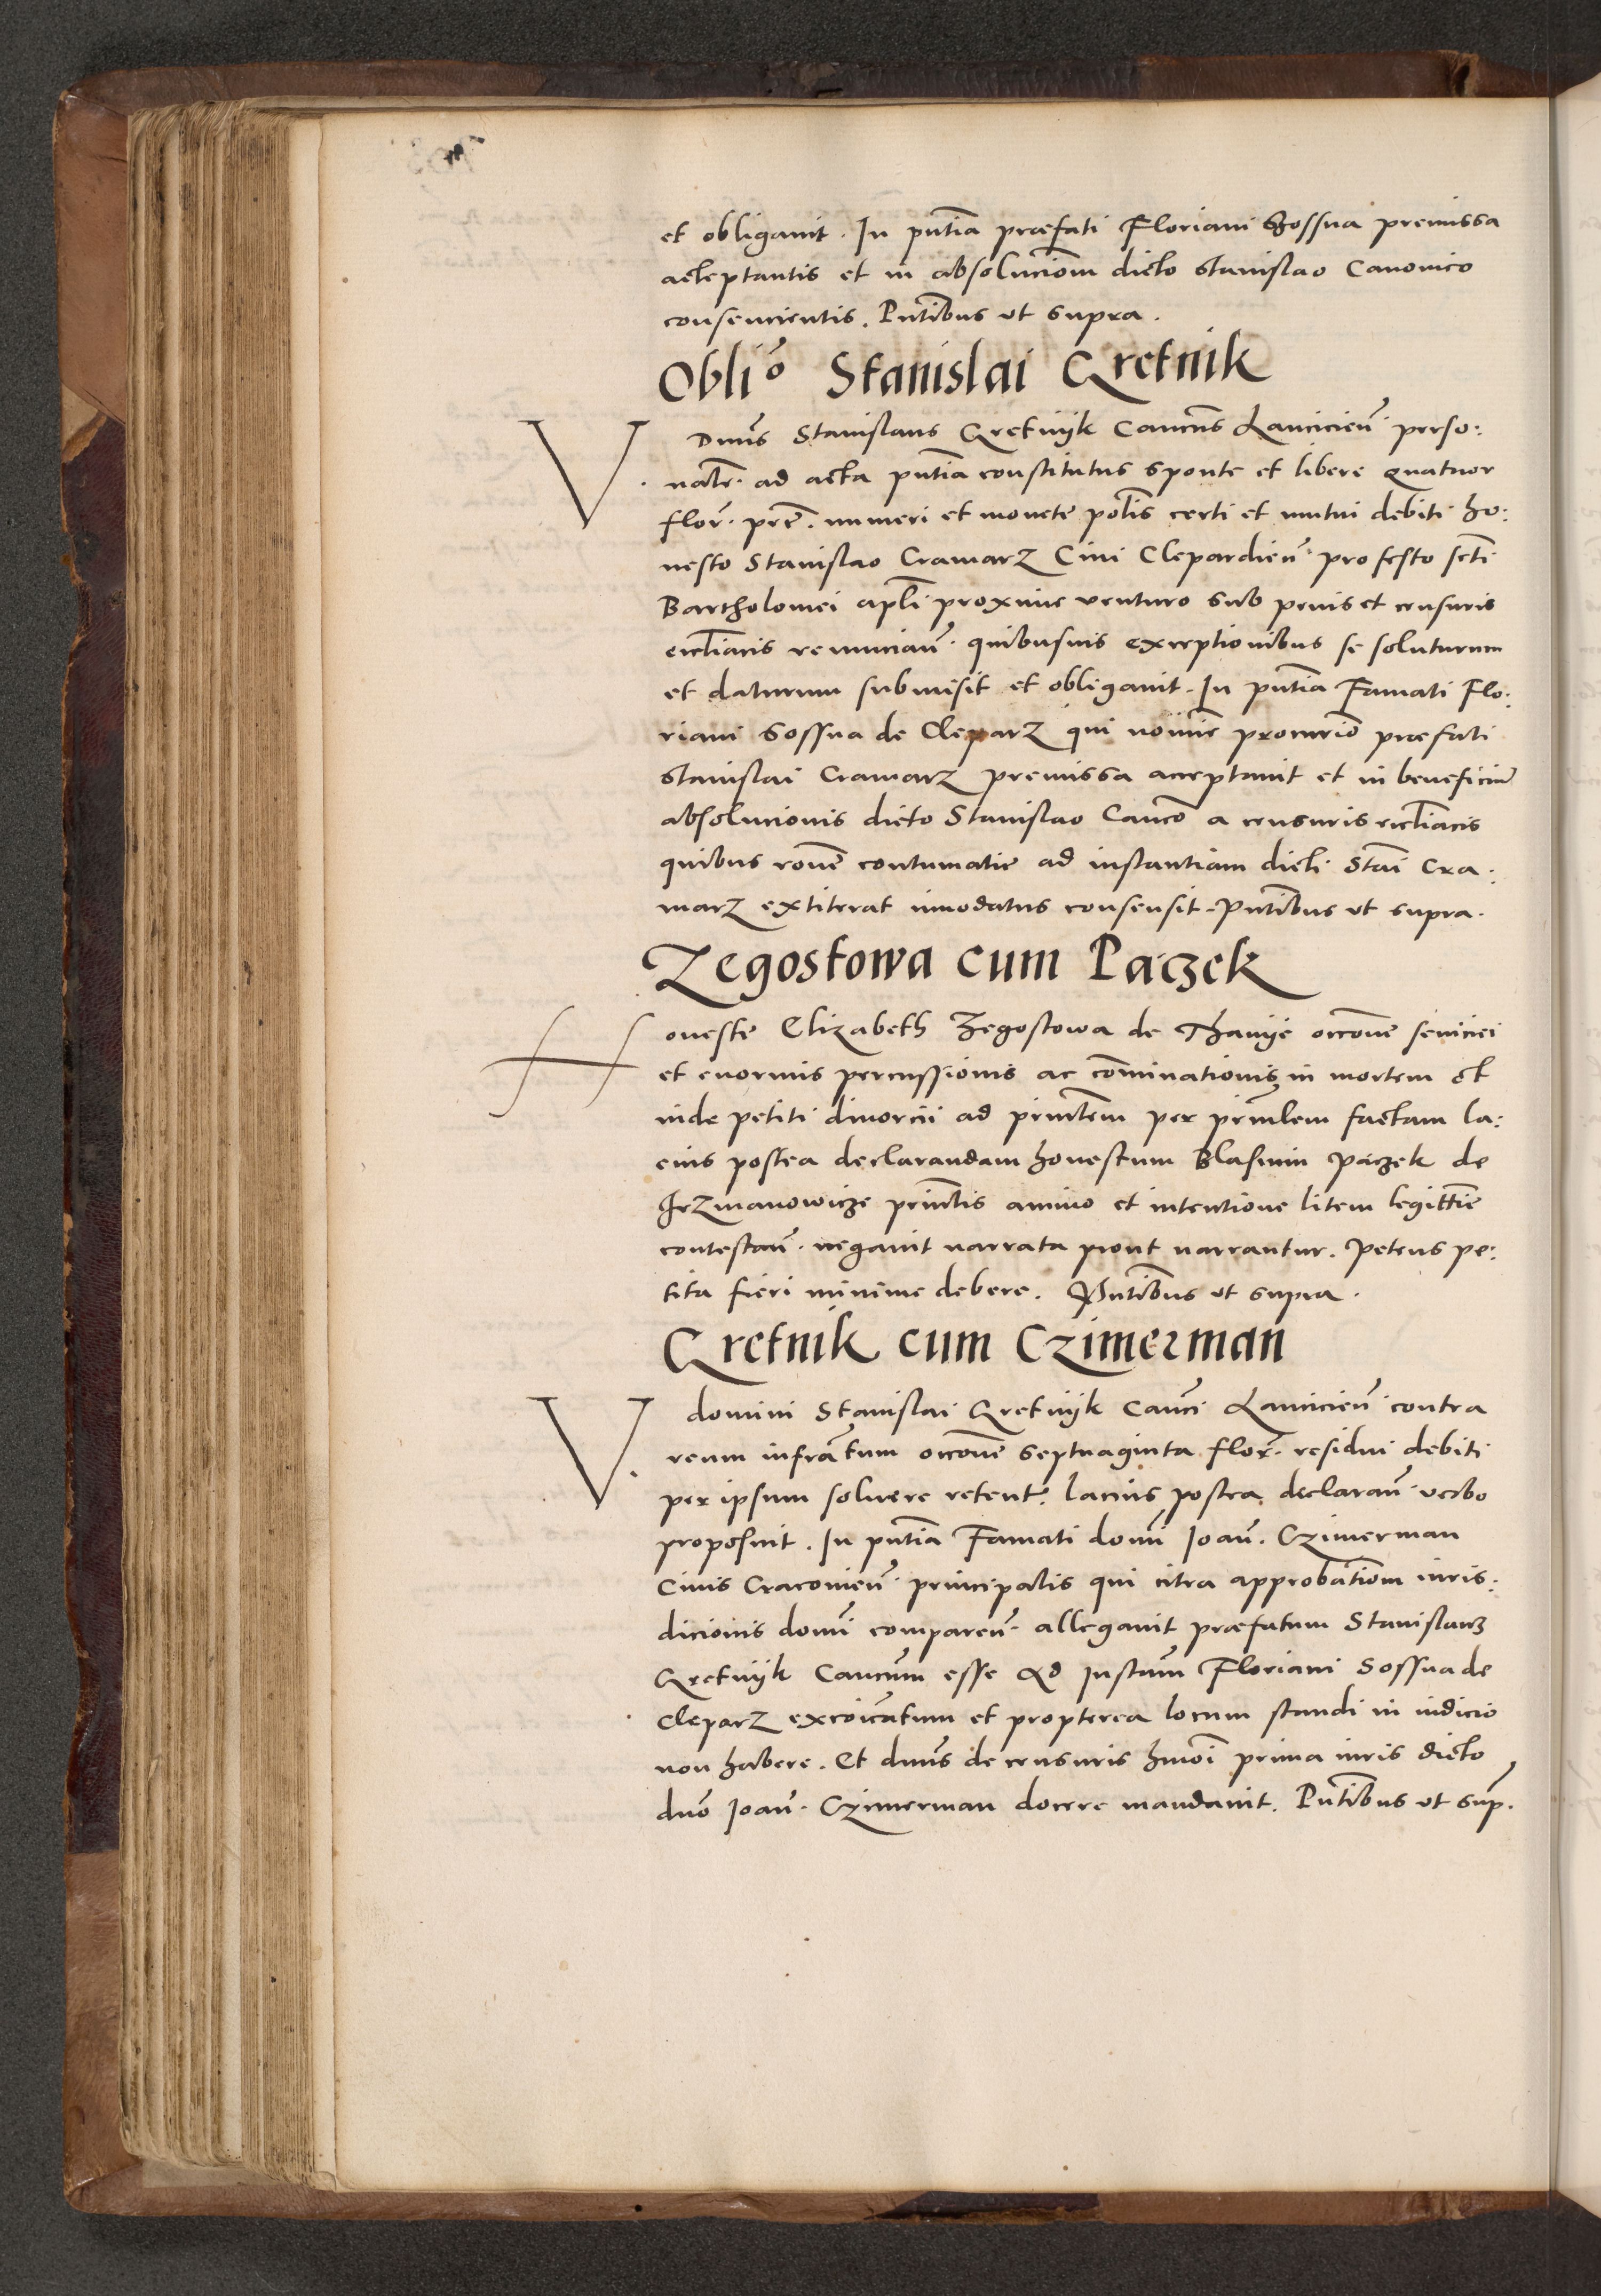 et obligavit. In pntia praefati Floriani Szossna premissa
acceptantis et in absolucionem dicto Stanislao Canonico
consencientis. Pntibus ut supra.
Oblio Stanislai Gretnik
V. Dnus Stanislaus Gretnijk Cancus Lancicien perso:
nalr ad acta pntia constitutus sponte et libere quatuor
flor. pre. numeri et monete polis certi et mutui debiti ho:
nesto Stanislao Cramarz Civi Clepardien pro festo scti
Bartholomei apli proxime venturo sub penis et censuris
eccliacis renuncian quibusvis exceptionibus se soluturum
et daturum submisit et obligavit. In pntia Famati Flo:
riani Sossna de Cleparz qui noine procurio praefati
Stanislai Cramarz premissa acceptavit et in beneficium
absolucionis dicto Stanislao Canco a censuris ecctiacis
quibus rone contumatie ad instantiam dicti Stai Cra:
marz extiterat innodatus consensit. Pntibus ut supra.
Zegostowa cum Paczek
Honeste Elizabeth Zegostowa de Thanije occone seviciei
et enormis percussionis ac cominationis in mortem et
inde petiti divorcii ad princtem per princlem factam la:
cius postea declarandam honestum Blasium Paczek de
Jrzmanowicze princtis animo et intentione litem legittie
contestan. negavit narrata prout narrantur. Petens pe:
tita fieri minime debere. Pntibus ut supra.
Gretnik cum Czimerman
V. domini Stanislai Gretnijk Canci Lancicien contra
reum infractum occone septuaginta flor. residui debiti
per ipsum solvere retent. lacius postea declaran verbo
proposuit. In pntia Famati domi Joan. Czimerman
Civis Cracovien principalis qui citra approbationem iuris:
dicionis domi comparen. allegavit praefatum Stanislaum
Gretnijk Cancum esse ad instam Floriani Sossna de
Cleparz excoicatum et propterea locum standi in iudicio
non habere. Et dnus de censuris hmoi prima iuris dicto
dno Joan. Czimerman docere mandavit. Pntibus ut sup.